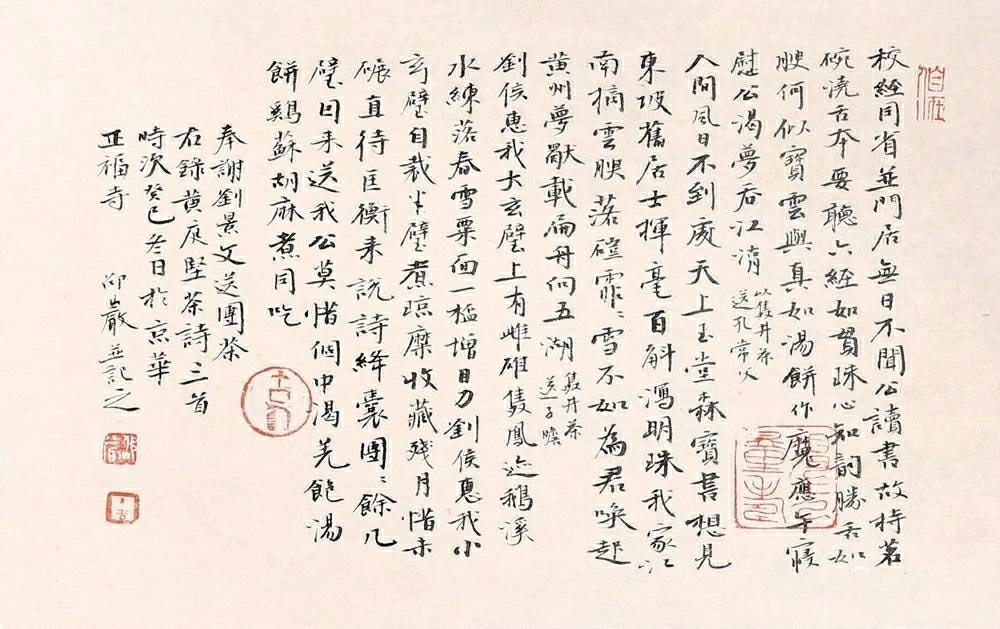 校經同省並門居無日不聞公讀書故持茗
碗澆舌本要聽六經如貫珠心知韻勝舌如
腴何似寶雲與真如湯餅作魔應午寢
慰公渴夢吞江湖
以雙井茶
送孔常父
人間風日不到處天上玉堂森寶書想見
東坡舊居士揮毫百斛瀉明珠我家江
南摘雲腴落磑霏〻雪不如為君喚起
黃州夢獨載扁舟向五湖
雙井茶
送子瞻
劉侯惠我大玄璧上有雌雄雙鳳迹鵝溪
水練落春雪粟面一杯增目力劉侯惠我小
玄璧自裁半璧煮瓊糜收藏殘月惜未
碾直待匡衡來說詩絳囊團〻餘几
璧因来送我公莫惜個中渴羌飽湯
餅鷄蘇胡麻煮同吃
奉謝劉景文送團茶
右錄黃庭堅茶詩三首
時次癸巳冬日於京華
正福寺
並記之